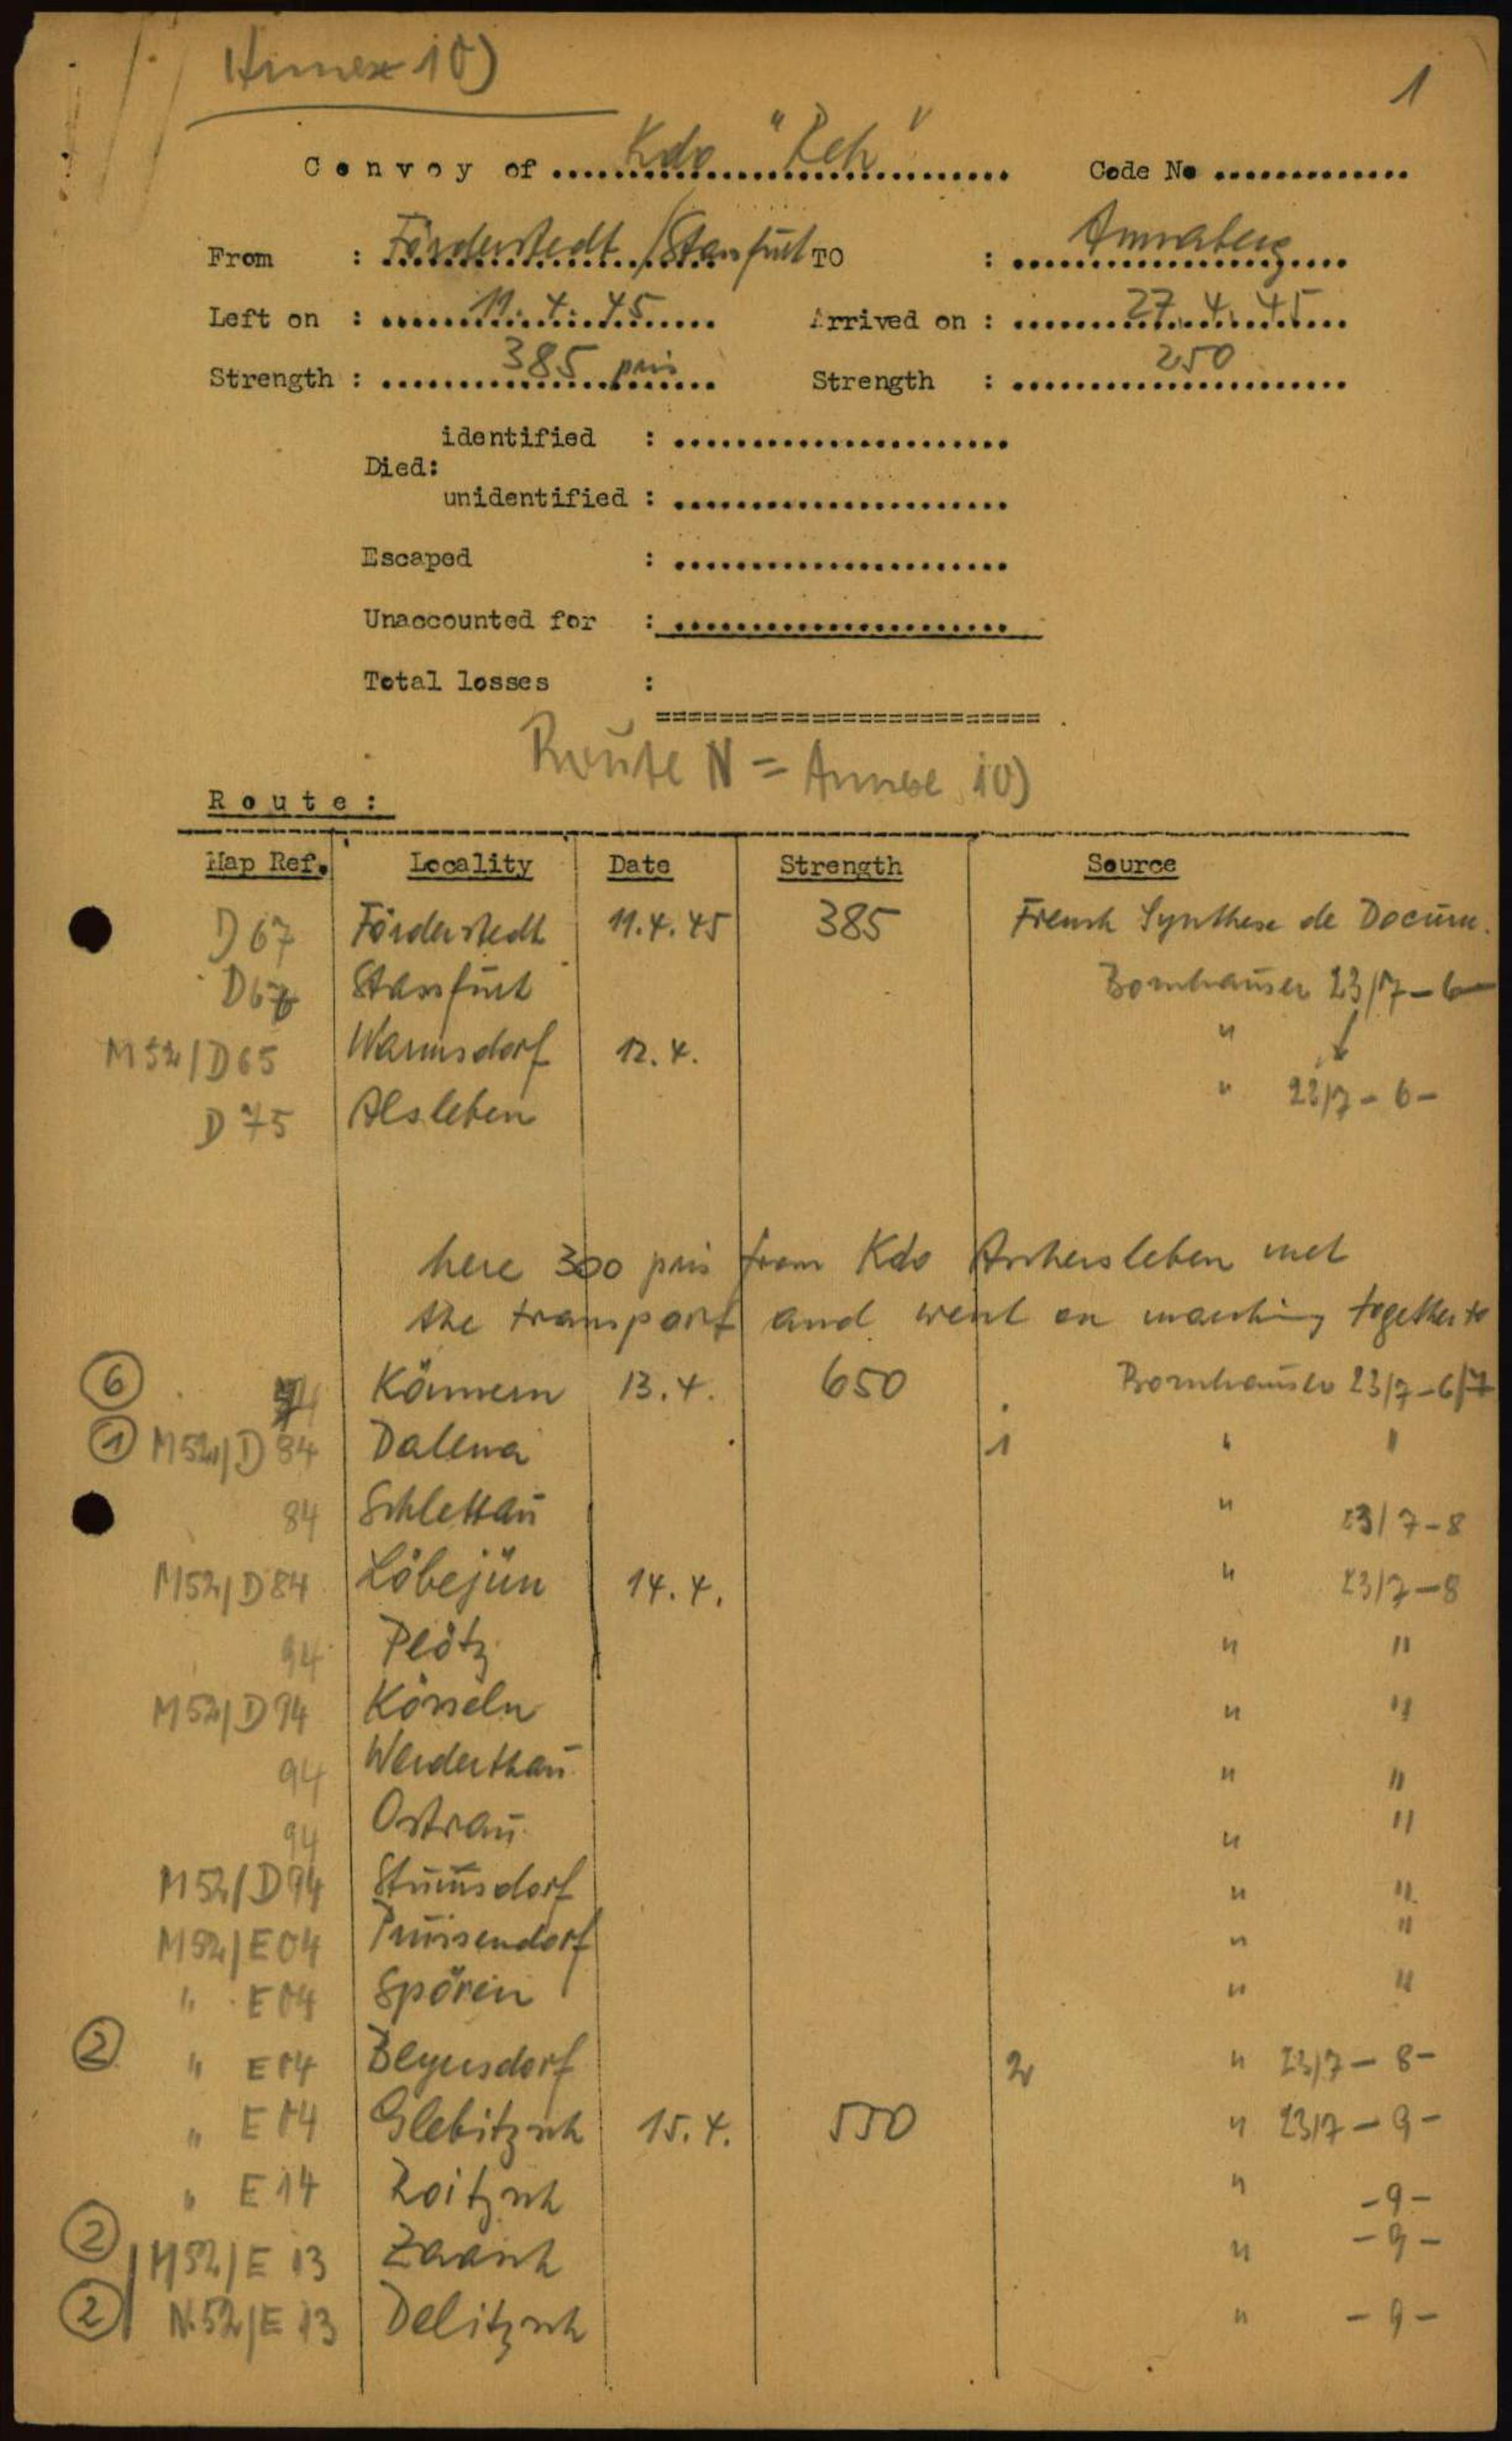 Annex 10)
1
Convoy of Kdo "Reh" Code No
From : Förderstedt / Stassfurt TO : Annaberg
Left on : 11.4.45 Arrived on : 27.4.45
Strength : 385 pris Strength : 250
identified :
Died:
unidentified :
Escaped :
Unaccounted for :
Total losses :
Route N = Annexe 10)
Route:
Map Ref. Locality Date Strength Source
D 67 Förderstedt 11.4.45 385 French Synthese de Docum.
D 67 Stassfurt Bornhauser 23/7-6
M52/D65 Warmsdorf 12.4. "
D 75 Alsleben " 23/7-6-
here 300 pris from Kdo Aschersleben met
the transport and went on marching together to
6 Könnern 13.4. 650 Bornhauser 23/7-6/7
1 M52/D 84 Dalena 1 " "
84 Schlettau " 23/7-8
M52/D84 Löbejün 14.4. " 23/7-8
94 Plötz " "
M52/D94 Kösseln " "
94 Werderthau " "
94 Ostrau " "
M52/D94 Stumsdorf " "
M52/E04 Prussendorf " "
" E04 Spören " "
2 " E14 Beyersdorf 2 " 23/7-8-
" E14 Glebitzsch 15.4. 550 " 23/7-9-
" E14 Roitzsch " -9-
2 M52/E 13 Zaasch " -9-
2 N.52/E 13 Delitzsch " -9-